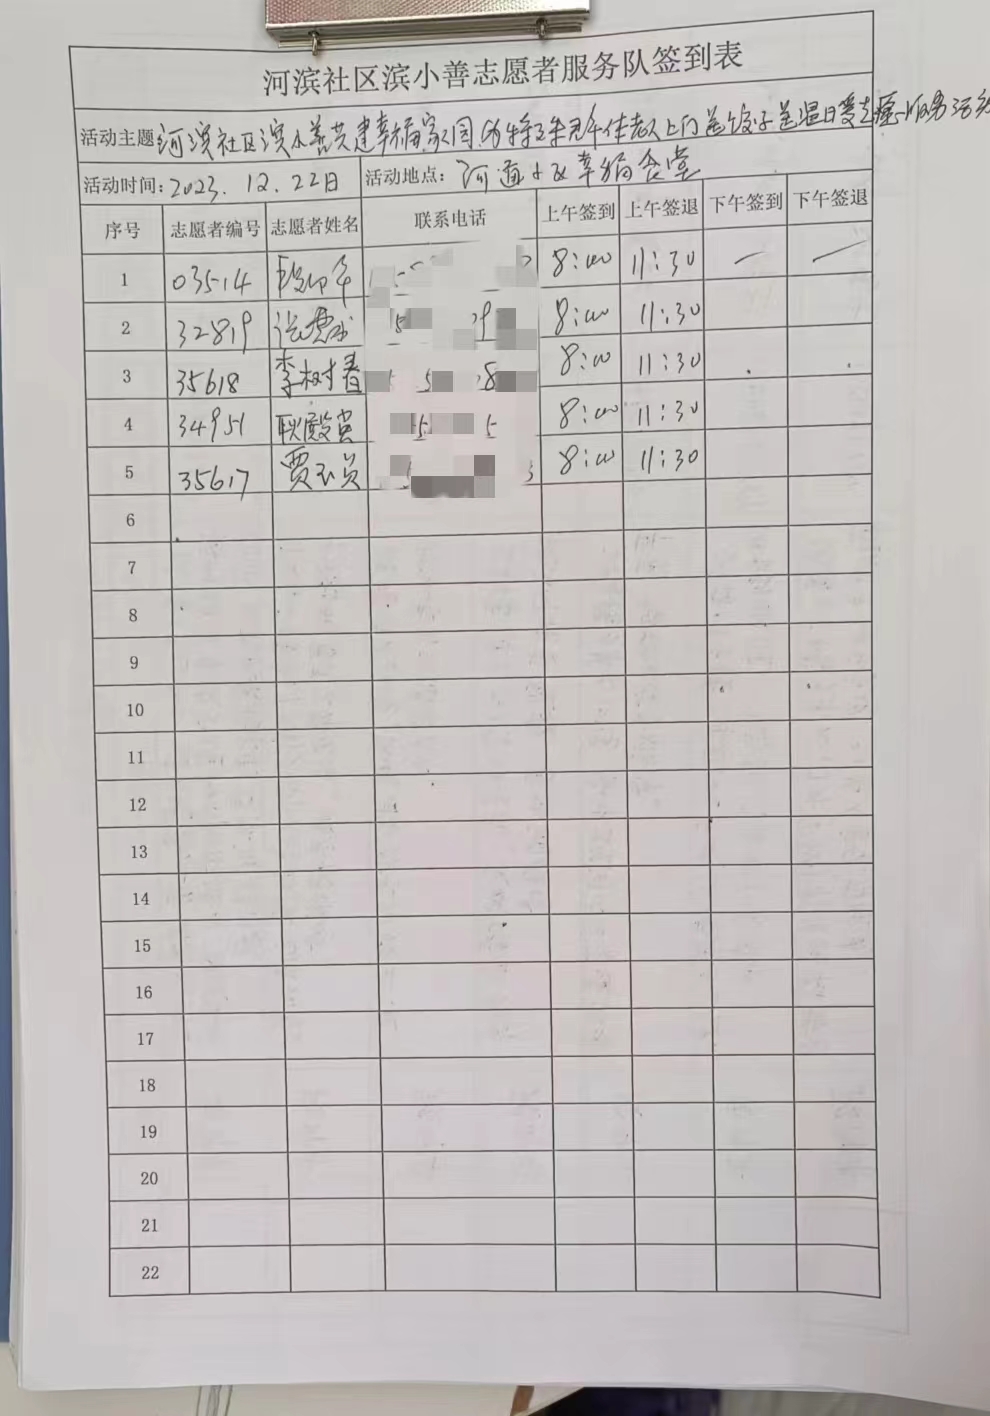 河滨社区滨小善志愿者服务队签到表
活动主题: 河滨社区滨小善共建幸福家园 为特殊老年体老人上门送饺子送温日爱志愿服务活动
活动时间: 2023.12.22日 活动地点: 河道小区幸福食堂
序号 志愿者编号 志愿者姓名 联系电话 上午签到 上午签退 下午签到 下午签退
1 03514 8:00 11:30 — —
2 32819 8:00 11:30
3 35618 李树春 8:00 11:30
4 34951 耿殿 8:00 11:30
5 35617 贾玉员 8:00 11:30
6
7
8
9
10
11
12
13
14
15
16
17
18
19
20
21
22